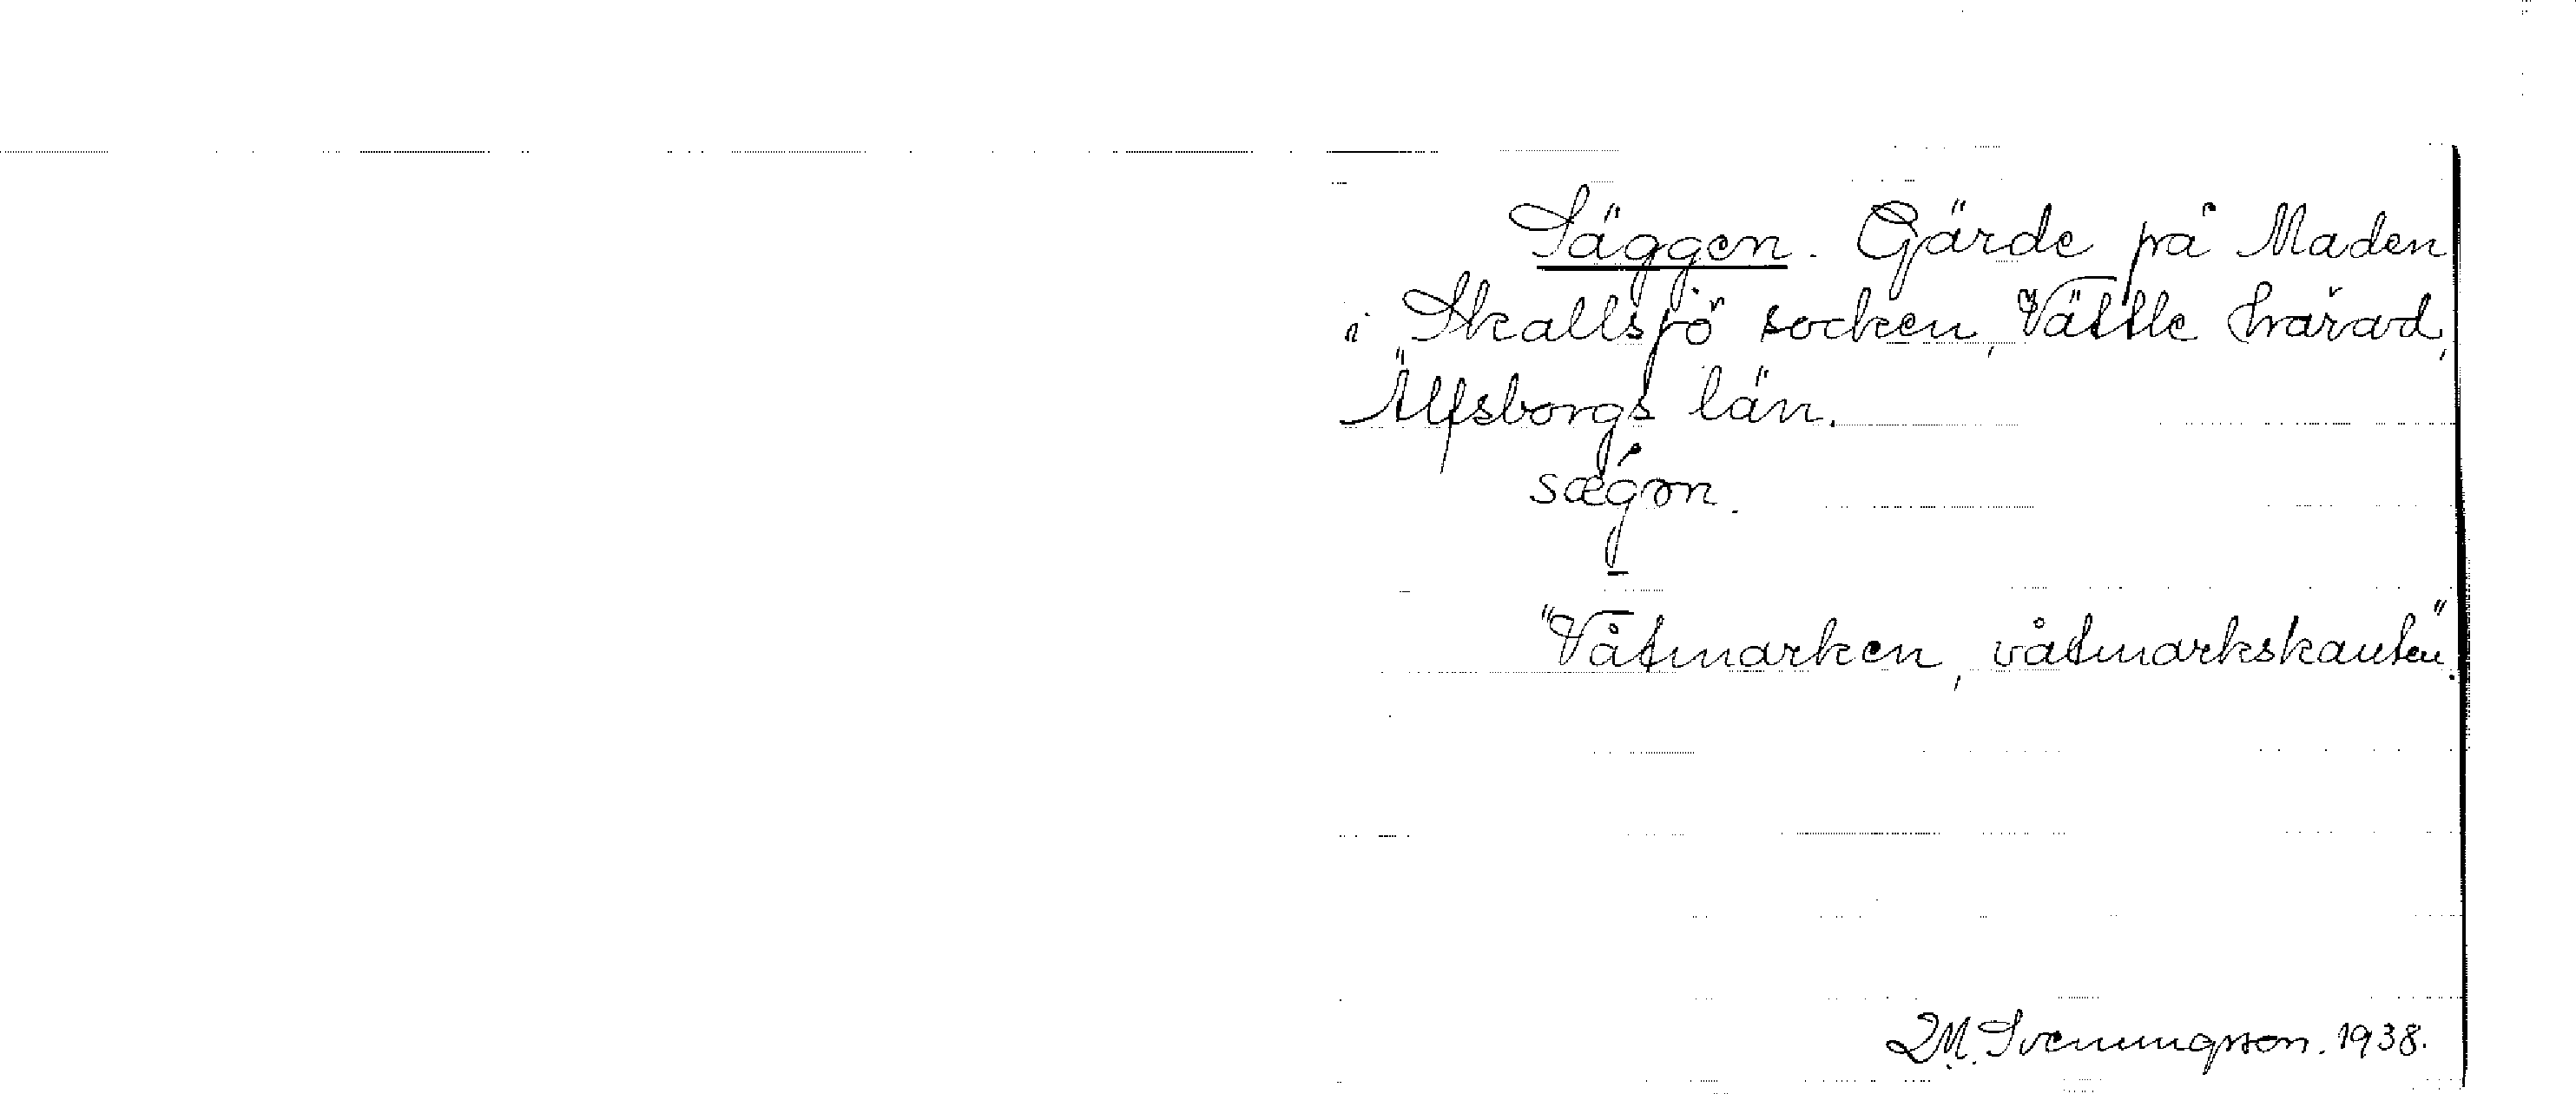 Säggen. Gärde på Maden
i Skallsjö socken, Vättle härad,
Älfsborgs län.
"Våtmarken, våtmarkskanten".
Svenungsson. 1938.